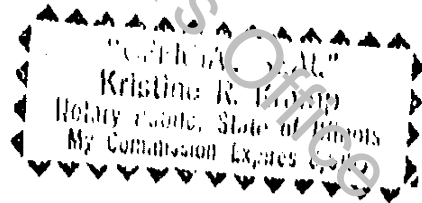 "OFFICIAL SEAL"
Kristine R.
Notary Public, State of Illinois
My Commission Expires
's Office